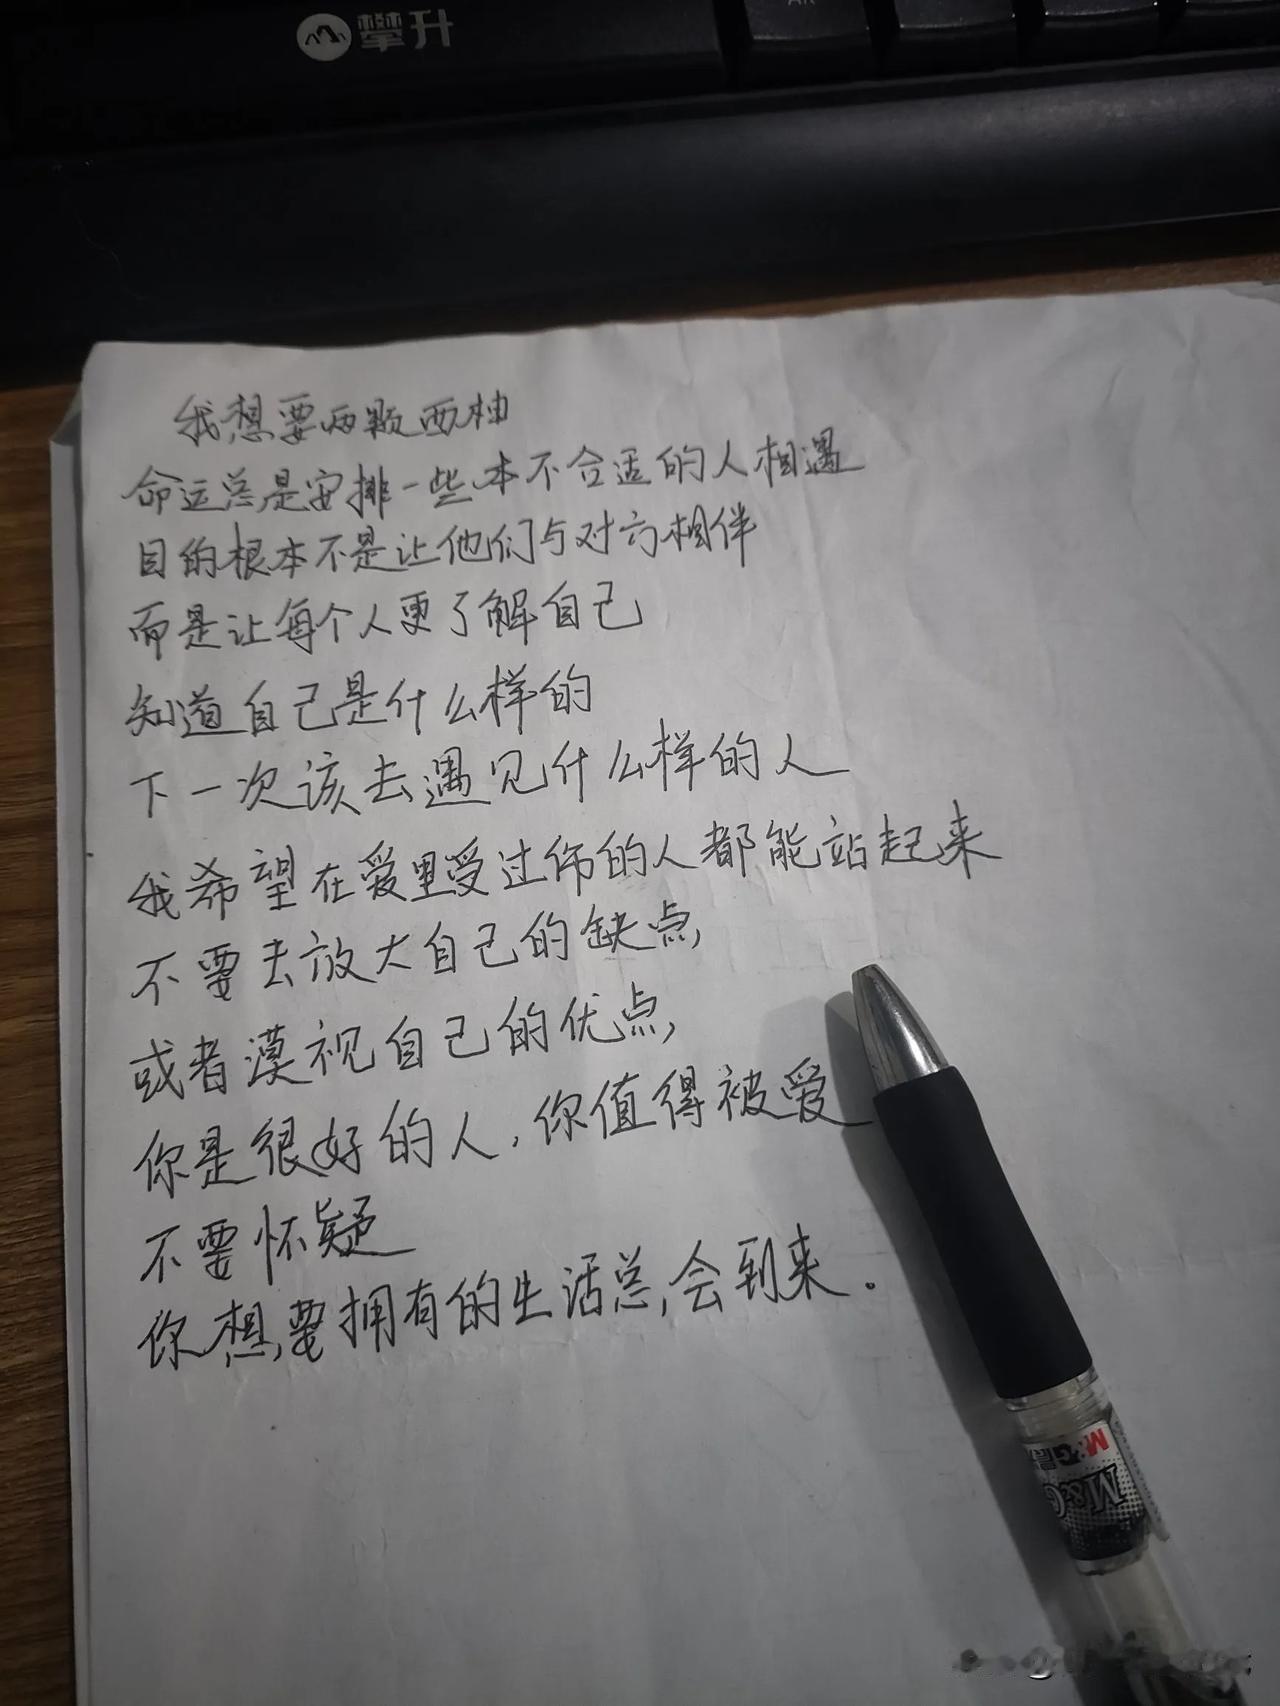 攀升
我想要两颗西柚
命运总是安排一些本不合适的人相遇
目的根本不是让他们与对方相伴
而是让每个人更了解自己
知道自己是什么样的
下一次该去遇见什么样的人
我希望在爱里受过伤的人都能站起来
不要去放大自己的缺点,
或者漠视自己的优点,
你是很好的人,你值得被爱
不要怀疑
你想要拥有的生活总会到来。
M&G
M&G